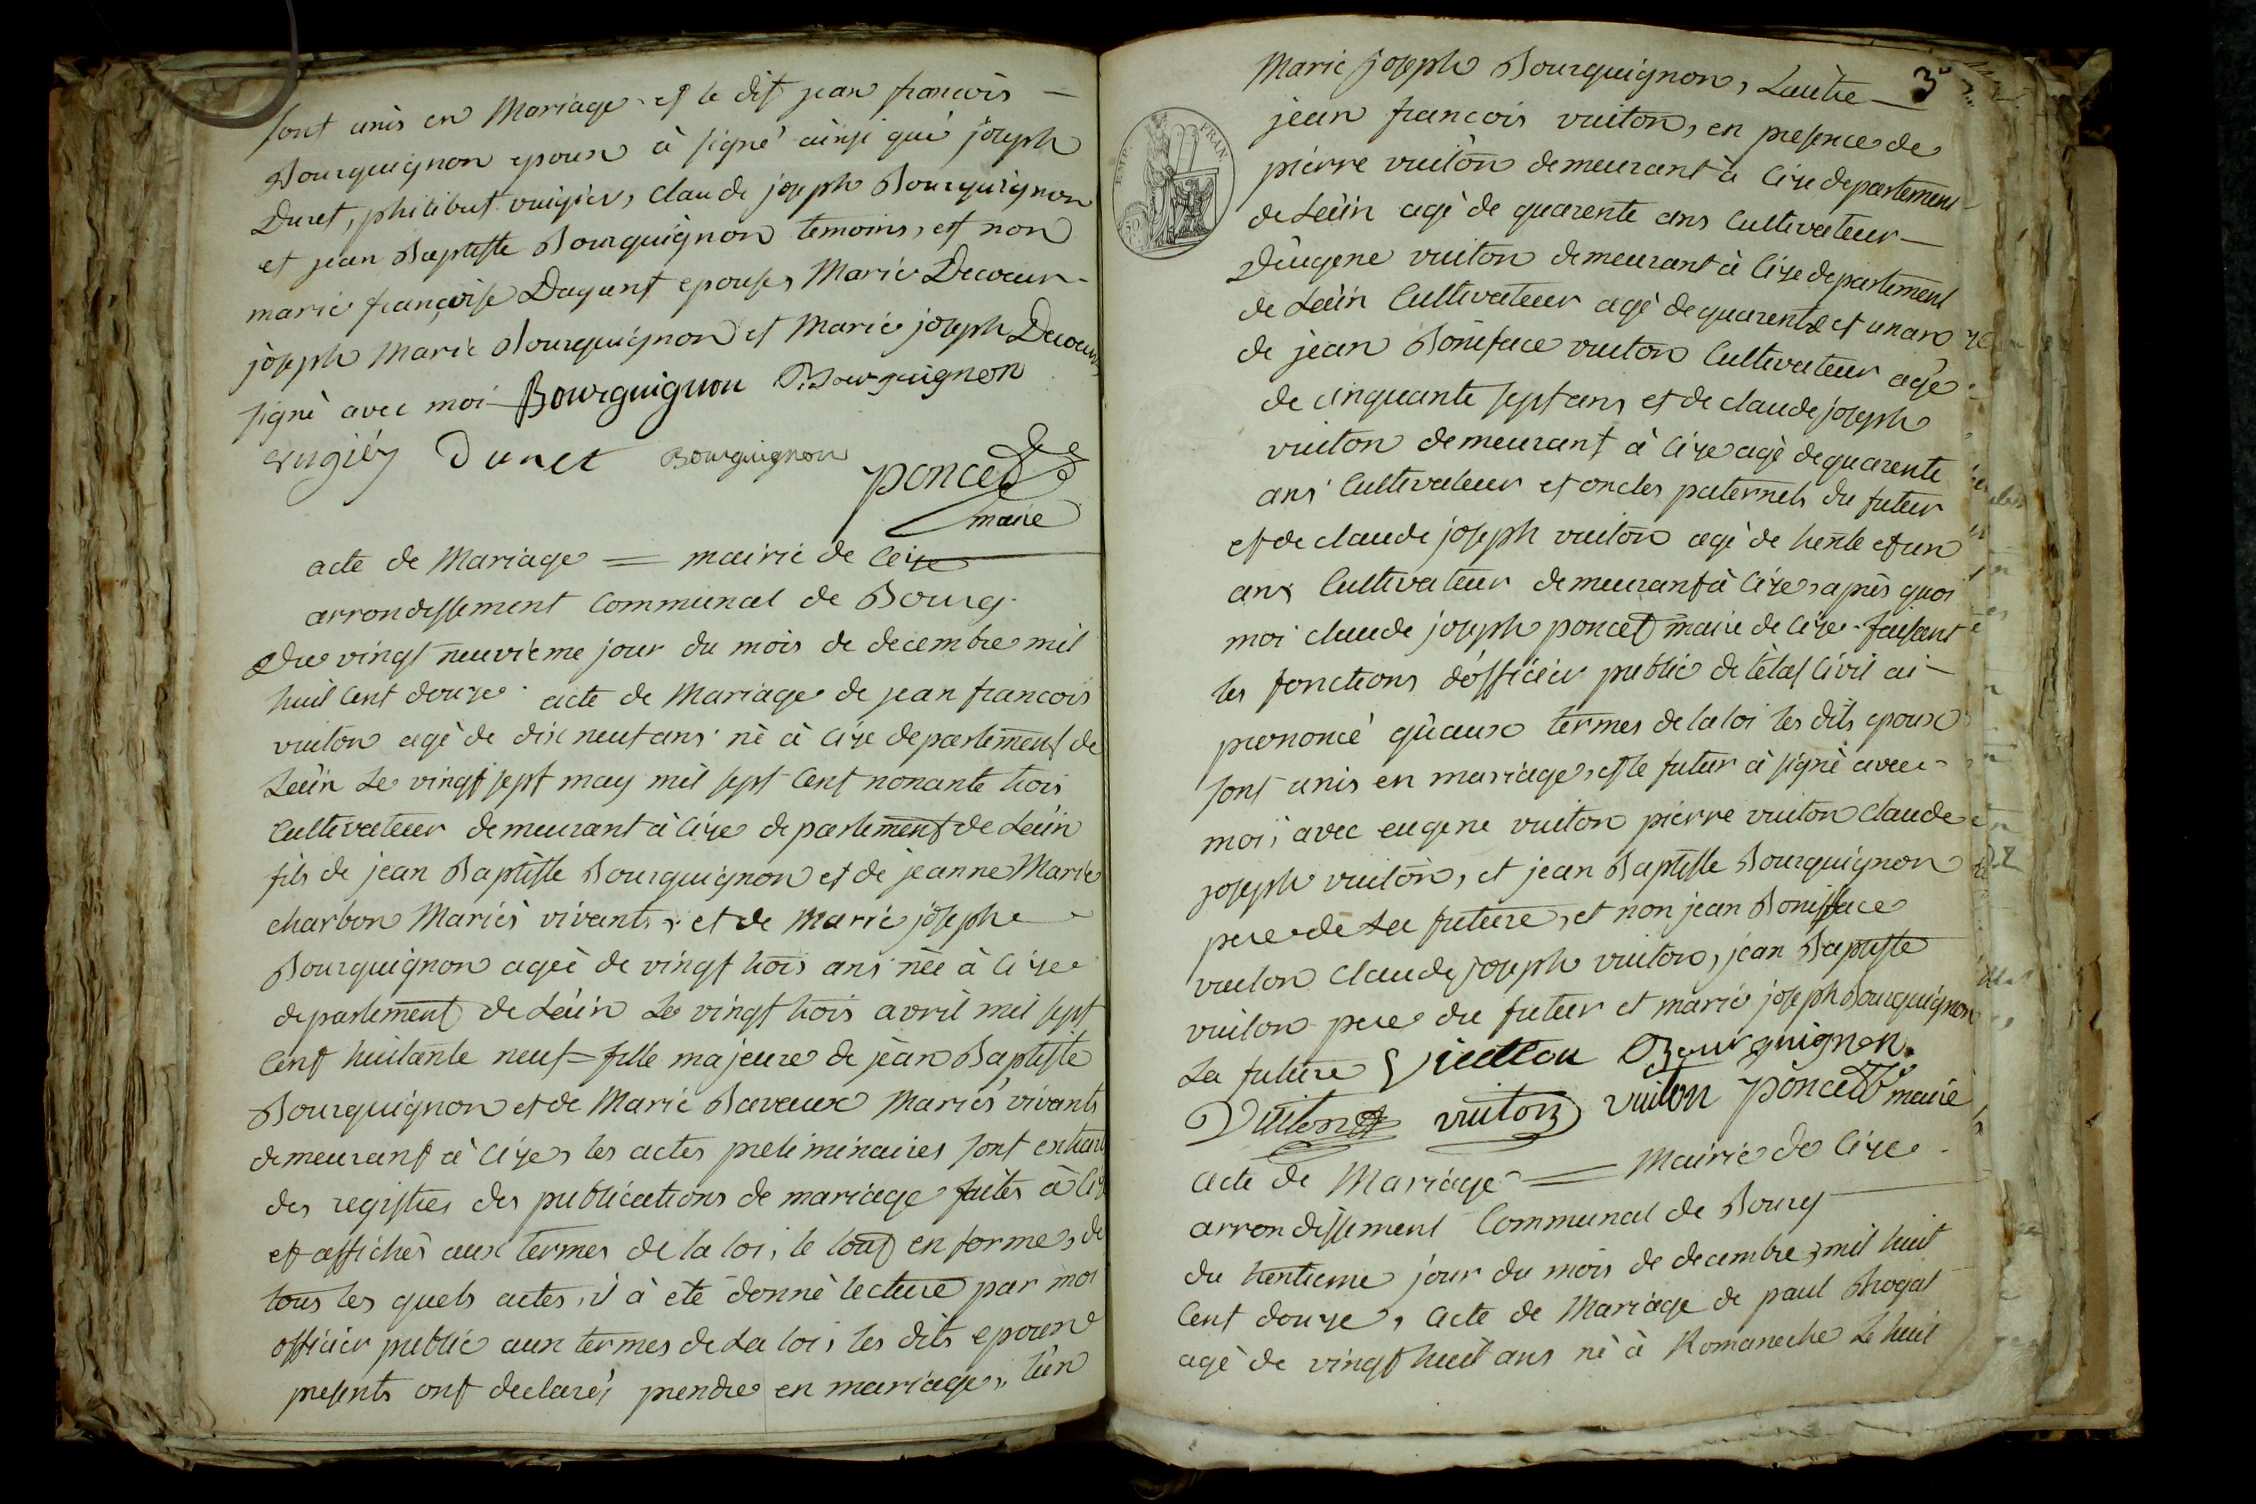 sont unis en Mariage et le dit jean francois —
Bourguignon epoux à signé ainsi que joseph
Duret, philibert vuigier, claude joseph Bourguignon
et jean Baptiste Bourguignon temoins, et non
marie françoise Dagunt epouse, Marie Decoeur-
joseph Marie Bourguignon et Marie joseph Decoeur,
signé avec moi Bourguignon Bourguignon
Duret Bourguignon
poncet
maire
acte de Mariage = mairie de Ceize
arrondissement Communal de Bourg.
Du vingt neuvieme jour du mois de decembre mil
huit Cent douze. acte de Mariage de jean francois
vuiton agé de dix neuf ans né à Cize departement de
Leain Le vingt sept may mil sept Cent nonante trois
Cultivateur demeurant à Cize departement de Leain
fils de jean Baptiste Bourguignon et de jeanne Marie
charbon Mariés vivants, et de Marie josephe
Bourguignon agée de vingt trois ans née à Cize
departement de Leain Le vingt trois avril mil sept
Cent huitante neuf = fille majeure de jean Baptiste
Bourguignon et de Marie Bavaux Mariés vivants
demeurant à Cize, les actes preliminaires sont extraits
des registres des publications de mariage faites à Cize
et affichés aux termes de la loi, le tout en forme, de
tous les quels actes, il à été donné lecture par moi
officier public aux termes de La loi, les dits epoux
presents ont declarés prendre en mariage, lun
3
Marie joseph Bourguignon, Lautre —
jean francois vuiton, en presence de
pierre vuiton demeurant à Cize departement
de Leain agé de quarente ans Cultivateur —
Deugene vuiton demeurant à Cize departement
de Leain Cultivateur agé de quarente et un an
de jean Boniface vuiton Cultivateur agé
de cinquante sept ans et de claude joseph
vuiton demeurant à Cize agé de quarente
ans Cultivateur et oncles paternels du futur
et de claude joseph vuiton agé de trente et un
ans Cultivateur demeurant à Cize, après quoi
moi claude joseph poncet maire de Cize faisant
les fonctions d'officier public de létat Civil ai —
prononcé qu'aux termes de la loi les dits epoux
sont unis en mariage, et le futur à signé avec
moi, avec eugene vuiton pierre vuiton Claude
joseph vuiton, et jean Baptiste Bourguignon
pere de La future, et non jean Boniface
vuiton Claude joseph vuiton, jean Baptiste
vuiton pere du futur et marie joseph Bourguignon
La future Vuitton Bourguignon
Vuiton vuiton vuiton poncet maire
acte de Mariage = Mairie de Cize
arrondissement Communal de Bourg
du trentieme jour du mois de decembre, mil huit
Cent douze, acte de Mariage de paul
agé de vingt huit ans né à Romaneche Le huit